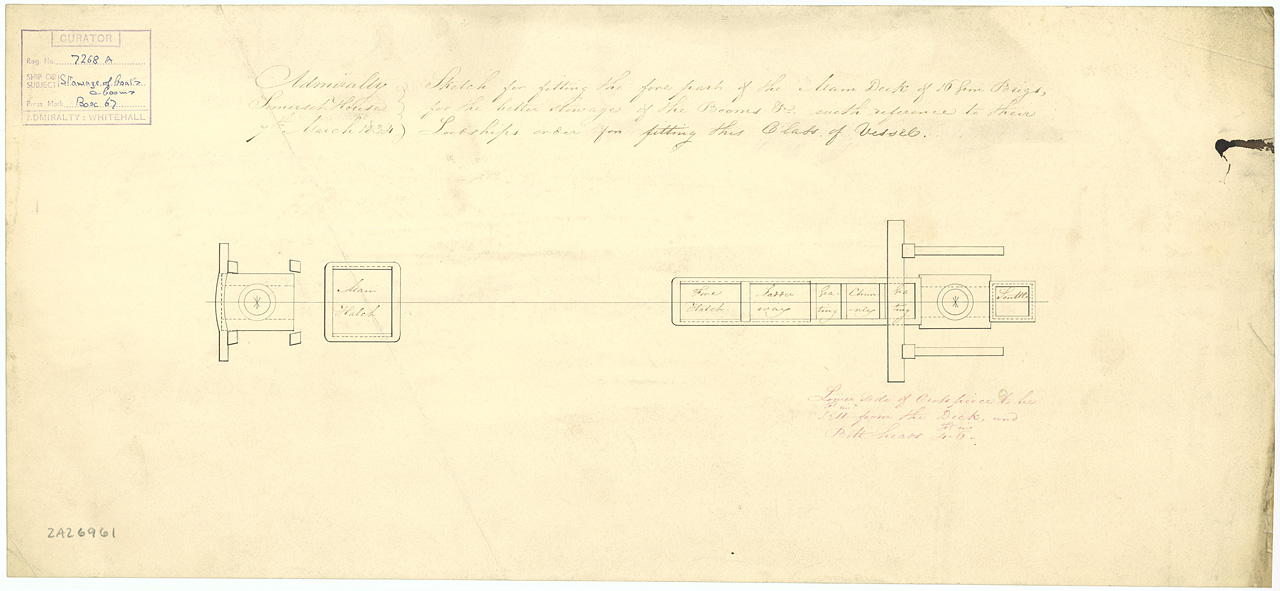 CURATOR
Reg. No. 7268 A
SHIP OR SUBJECT Stowage of boats & booms
Press Mark Box 67
ADMIRALTY: WHITEHALL
Admiralty
Somerset House
7th March 1834
Sketch for fitting the fore part of the Main Deck of 16 Gun Brigs,
for the better stowage of the Booms &c. with reference to their
Lordships order for fitting this Class of Vessel.
Main
Hatch
Fore
Hatch
Ladder
way
Gra-
ting
Chim-
ney
Gra
ting
Scuttle
Lower side of Crosspiece to be
from the Deck, and
Bitt heads
ZAZ6961